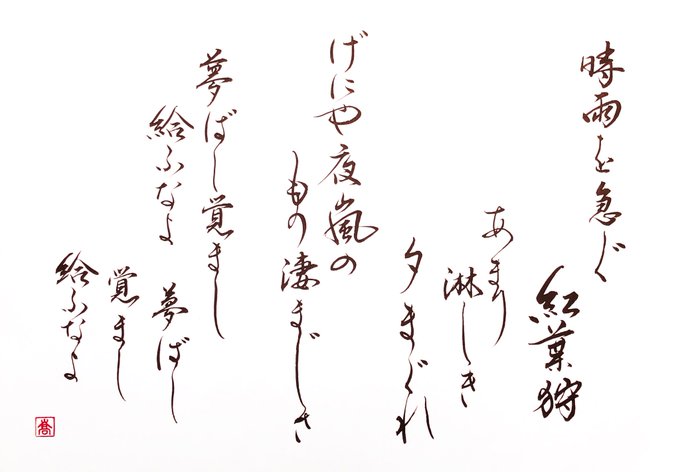 時雨を急ぐ
紅葉狩
あまり
淋しき
夕まぐれ
げにや夜嵐の
もの凄まじさ
夢ばし覚まし
給ふなよ
夢ばし
覚まし
給ふなよ